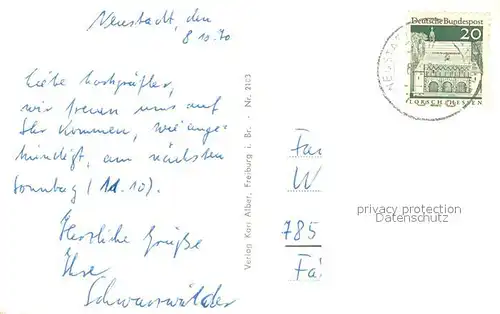 Neustadt, den
8.10.70
Liebe Lochgräfler,
wir freuen uns auf
Ihr Kommen, wie ange-
kündigt, am nächsten
Sonntag (11.10).
Herzliche Grüße
Ihre
Schwarzwälder
Verlag Karl Alber, Freiburg i. Br. - Nr. 2103
Deutsche Bundespost
20
LORSCH/HESSEN
NEUSTA
Fa
W
785
Fa
privacy protection
Datenschutz